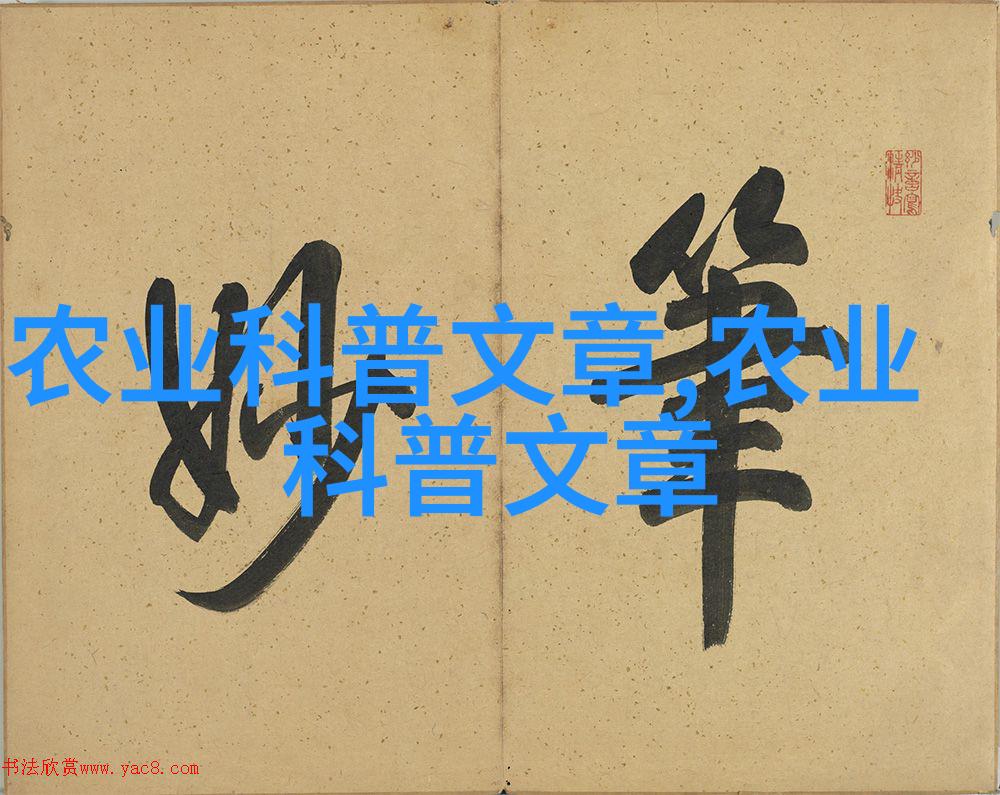 農业科普文章,农业
科普文章
筆
妙
书法欣赏www.yac8.com